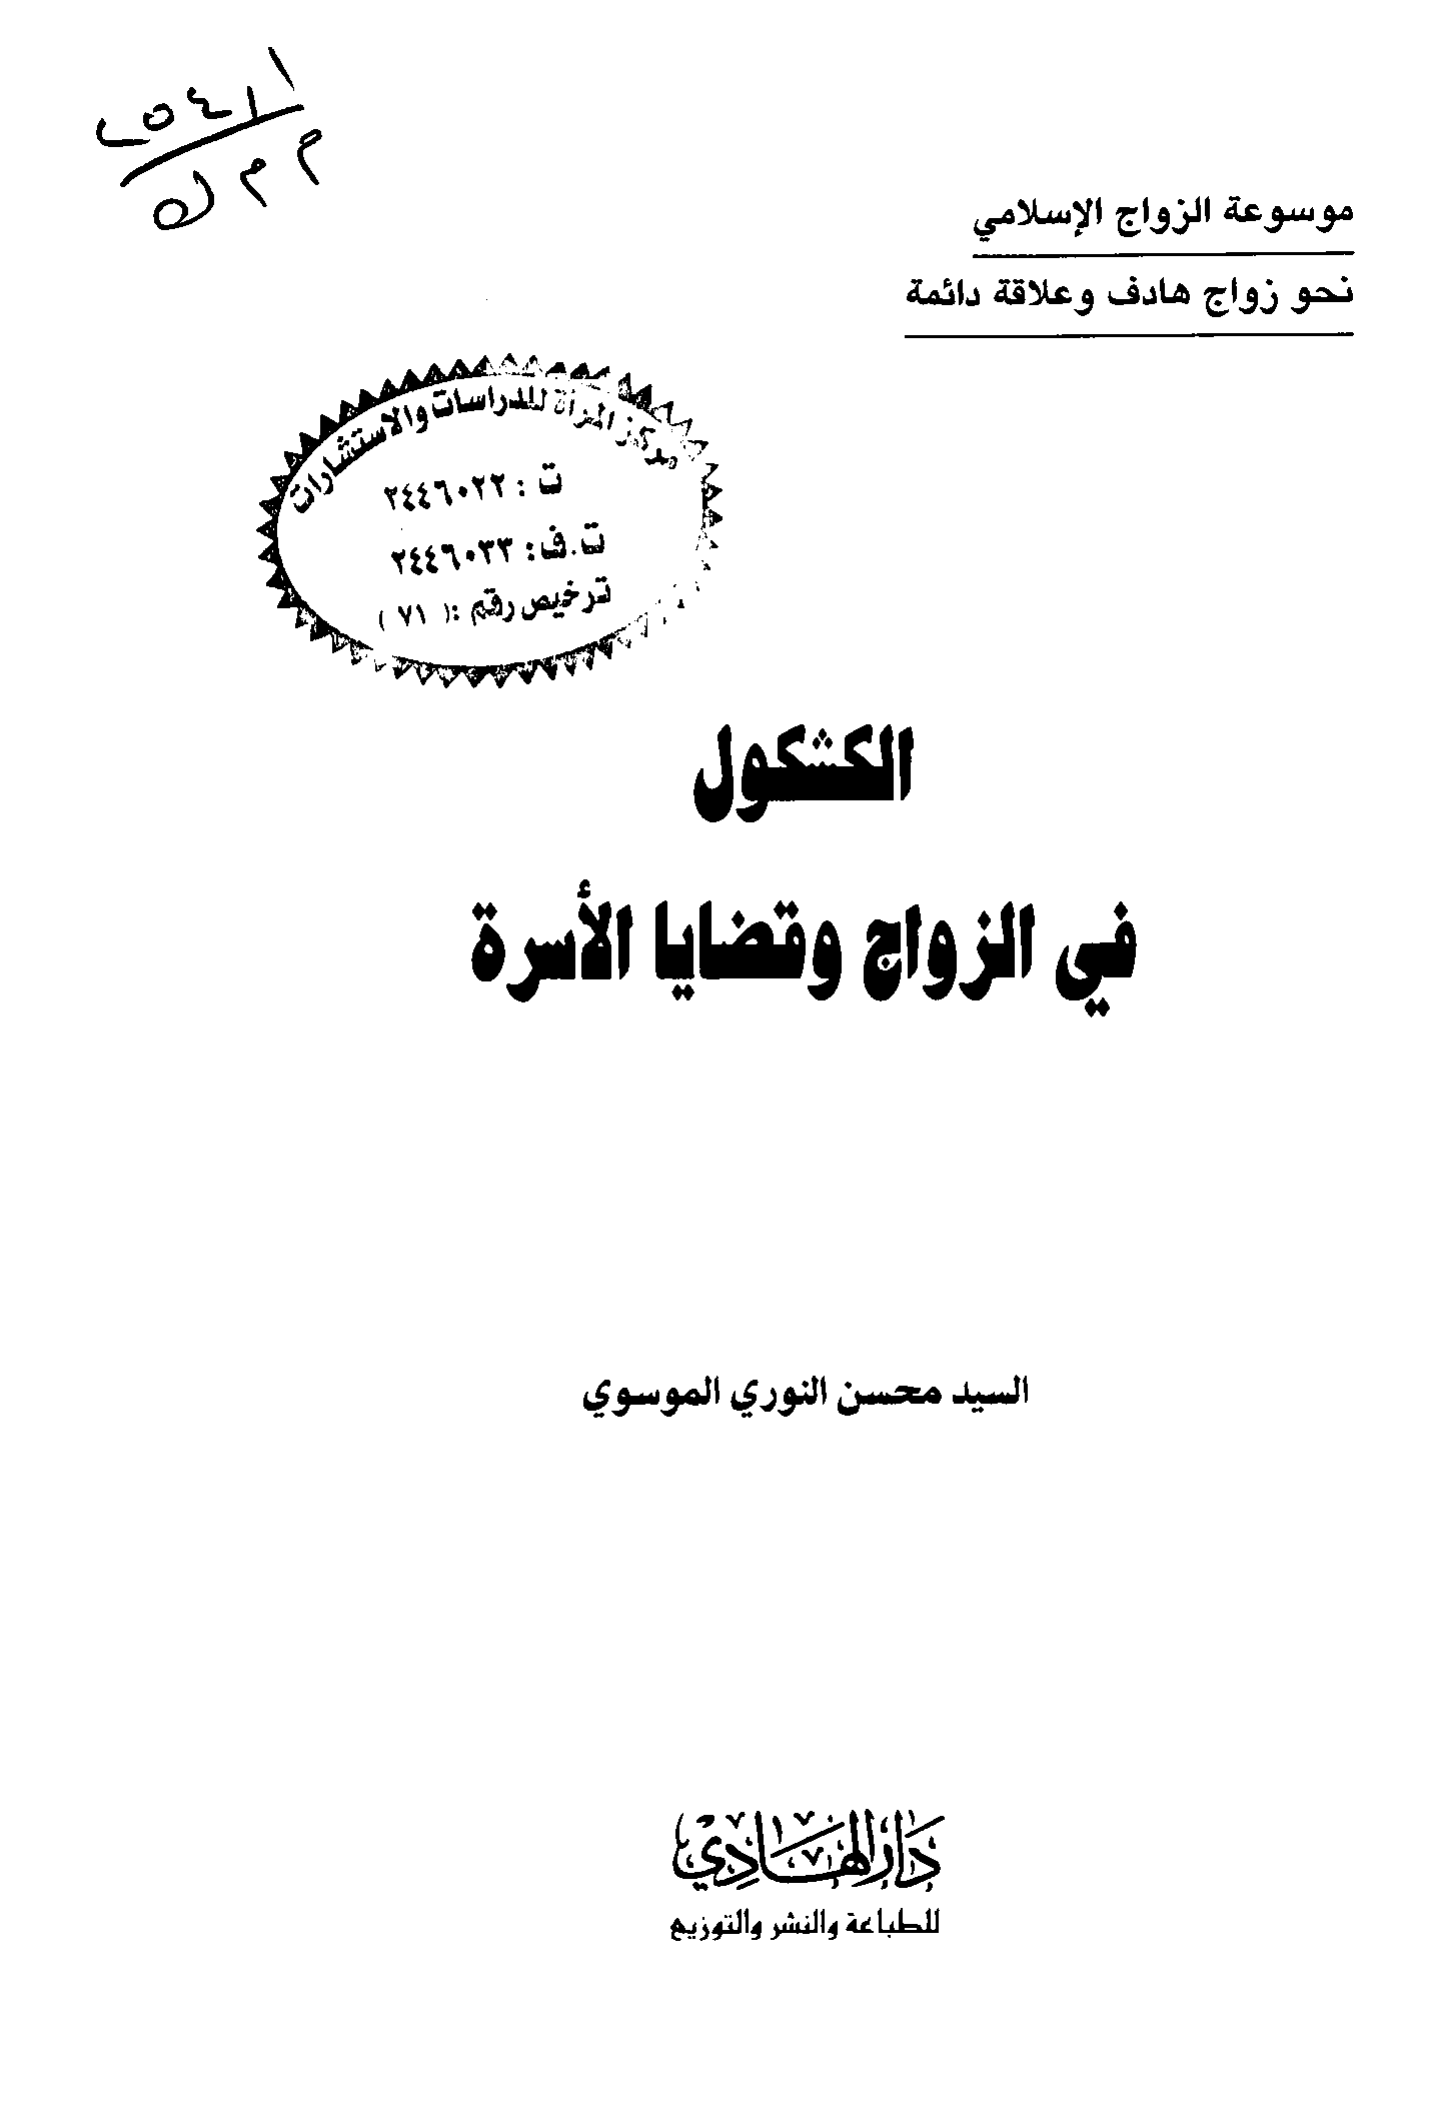 موسوعة الزواج الإسلامي
نحو زواج هادف وعلاقة دائمة
مركز المرأة للدراسات والاستشارات
ت : ٢٤٤٦٠٢٢
ت.ف: ٢٤٤٦٠٣٣
ترخيص رقم :( ٧١ )
الكشكول
في الزواج وقضايا الأسرة
السيد محسن النوري الموسوي
دار الهادي
للطباعة والنشر والتوزيع